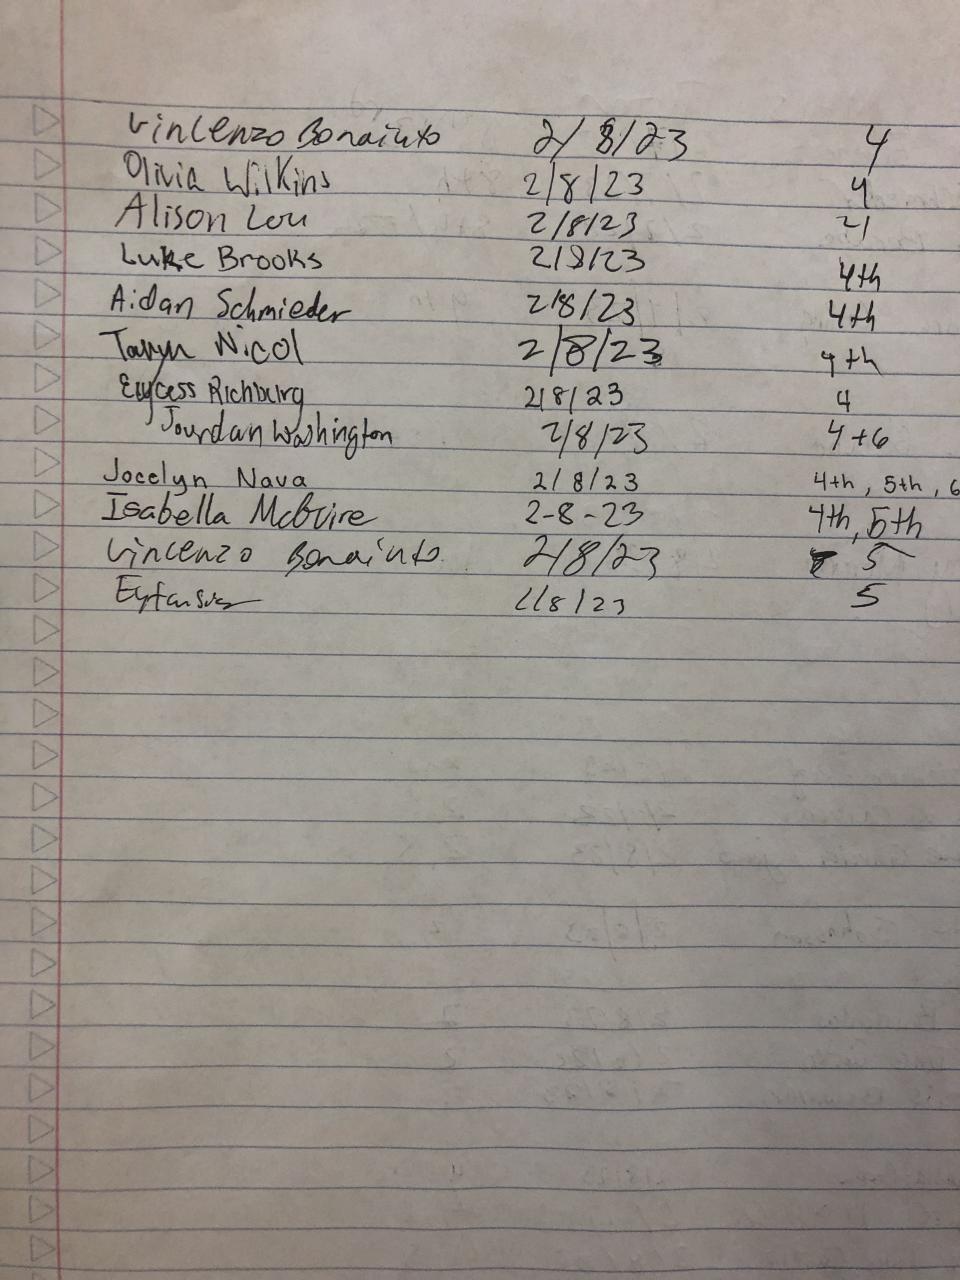 Vincenzo Bonaiuto 2/8/23 4
Olivia Wilkins 2/8/23 4
Alison Lou 2/8/23 4
Luke Brooks 2/8/23 4th
Aidan Schmieder 2/8/23 4th
Taryn Nicol 2/8/23 4th
Richburg 2/8/23 4
Jourdan Washington 2/8/23 4+6
Jocelyn Nava 2/8/23 4th, 5th, 6
Isabella McGuire 2-8-23 4th, 5th
Vincenzo Bonaiuto 2/8/23 5
2/8/23 5